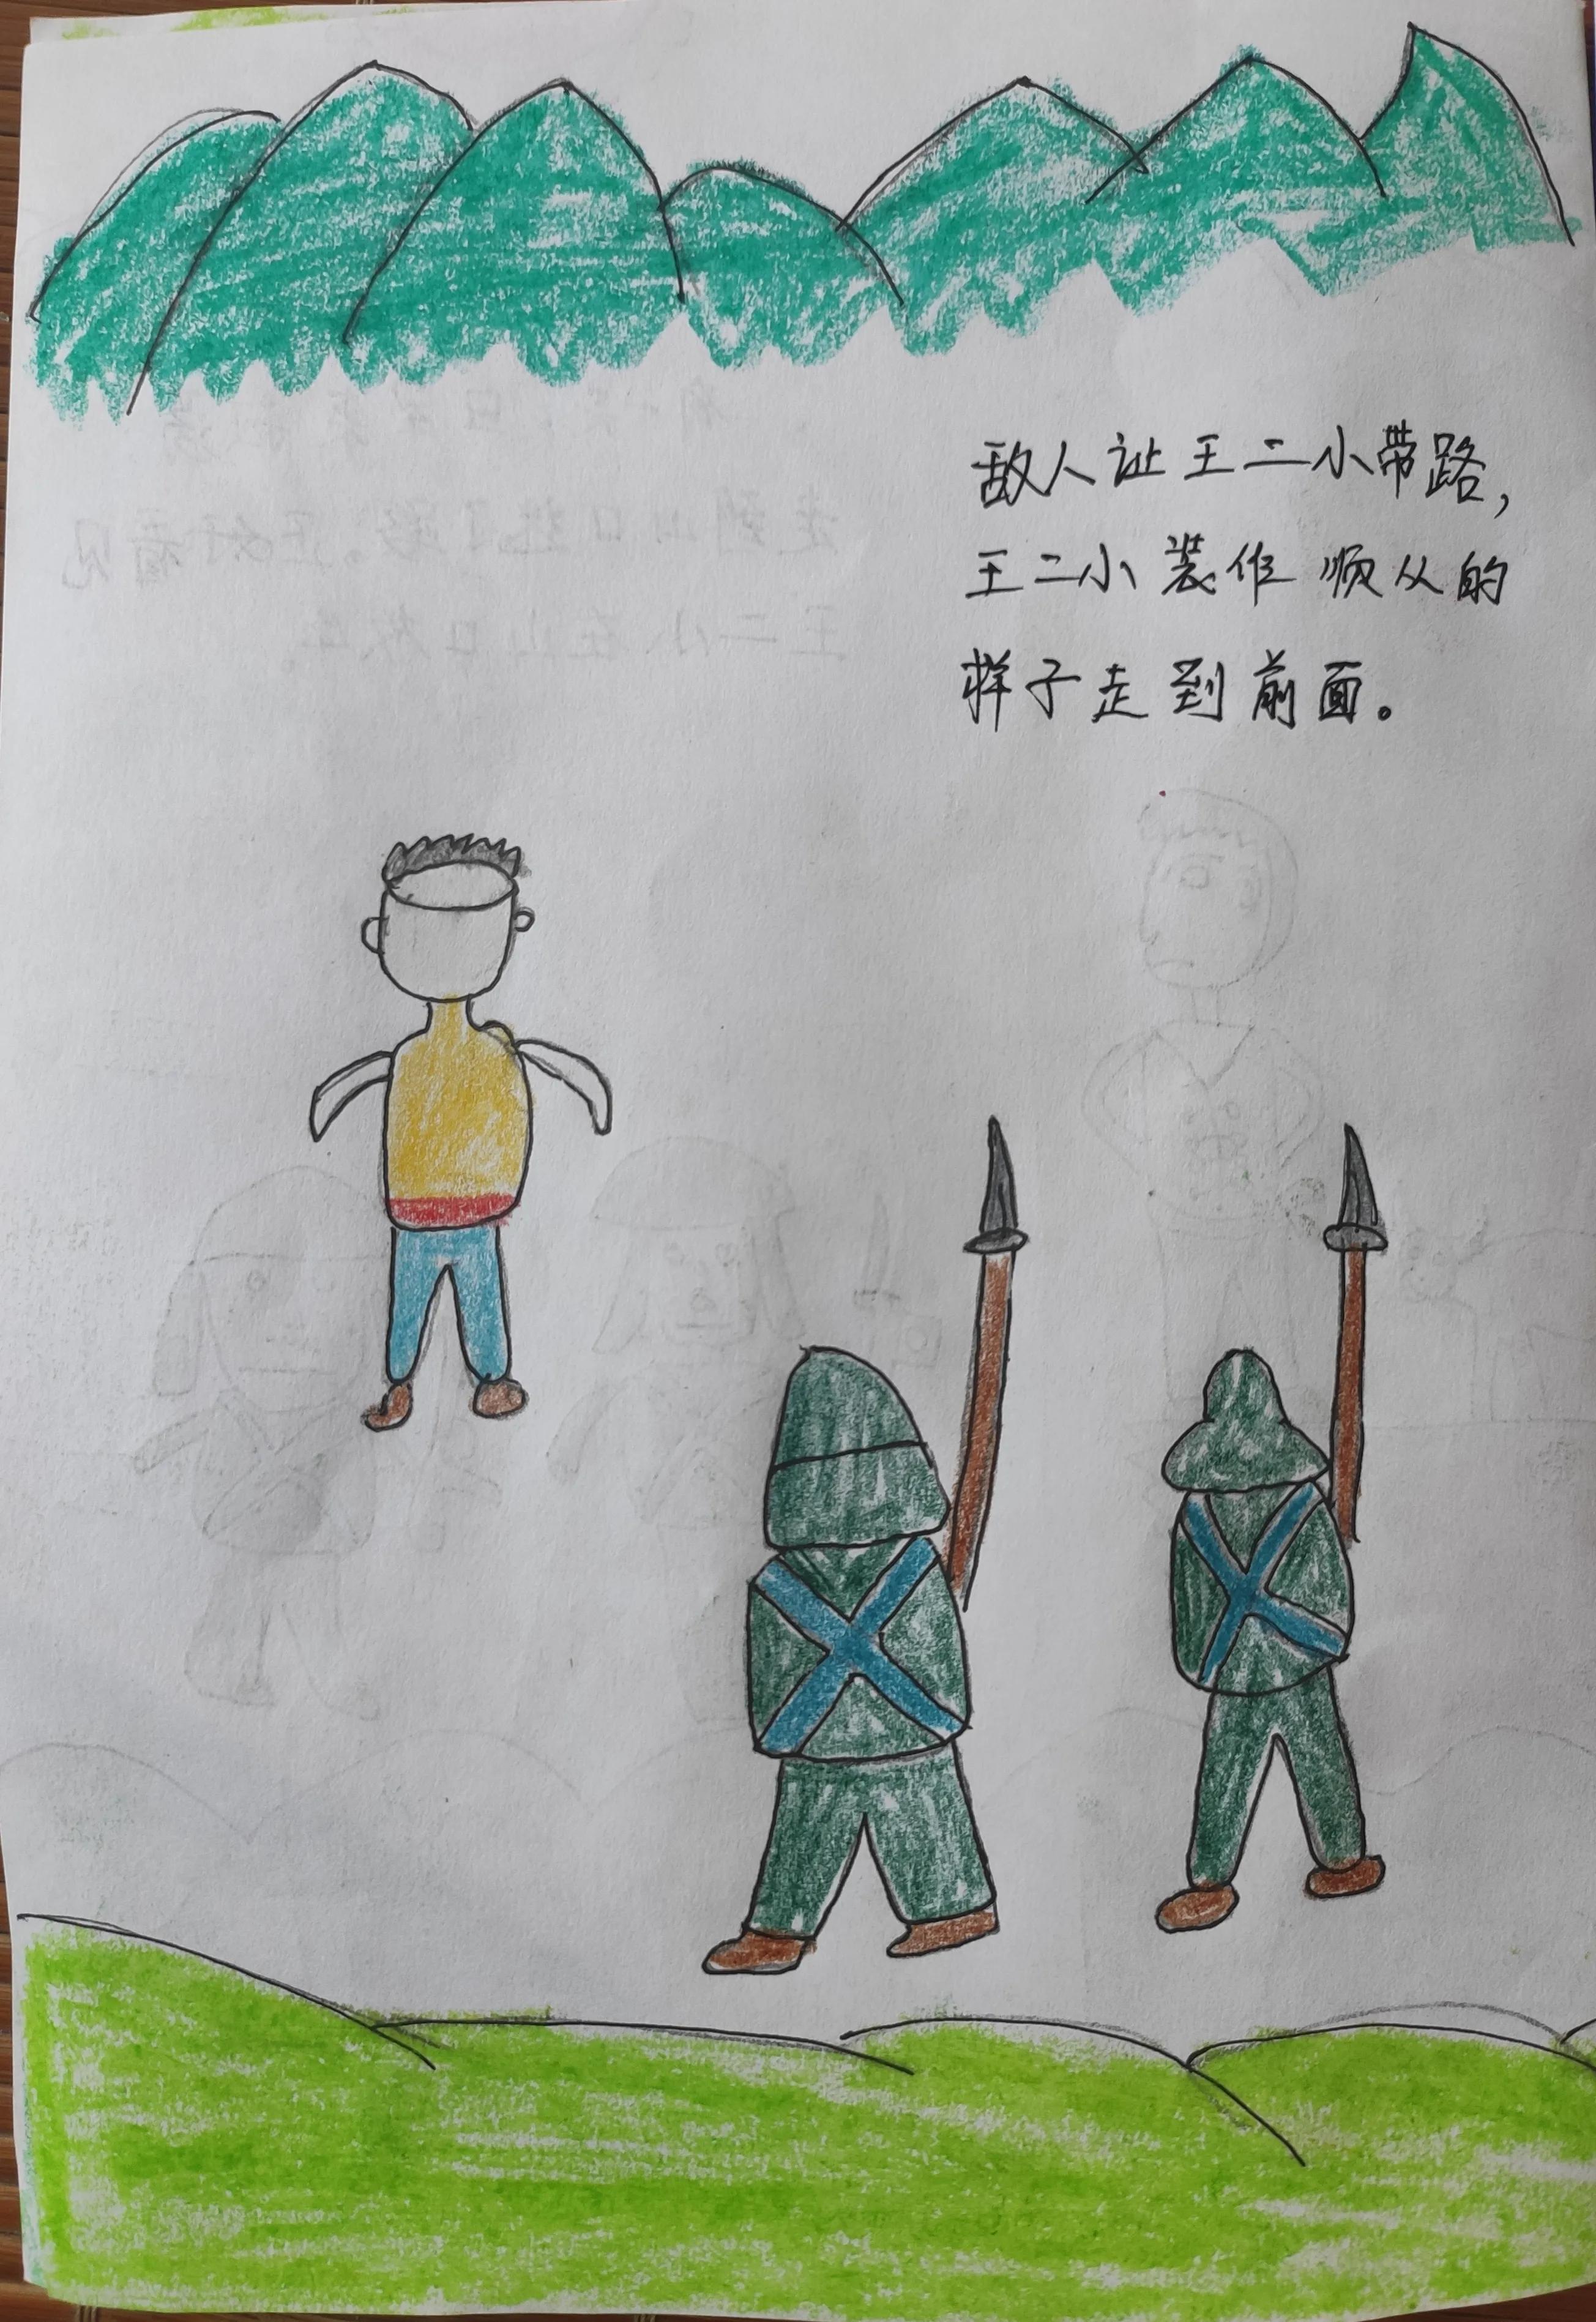 敌人让王二小带路,
王二小装作顺从的
样子走到前面。